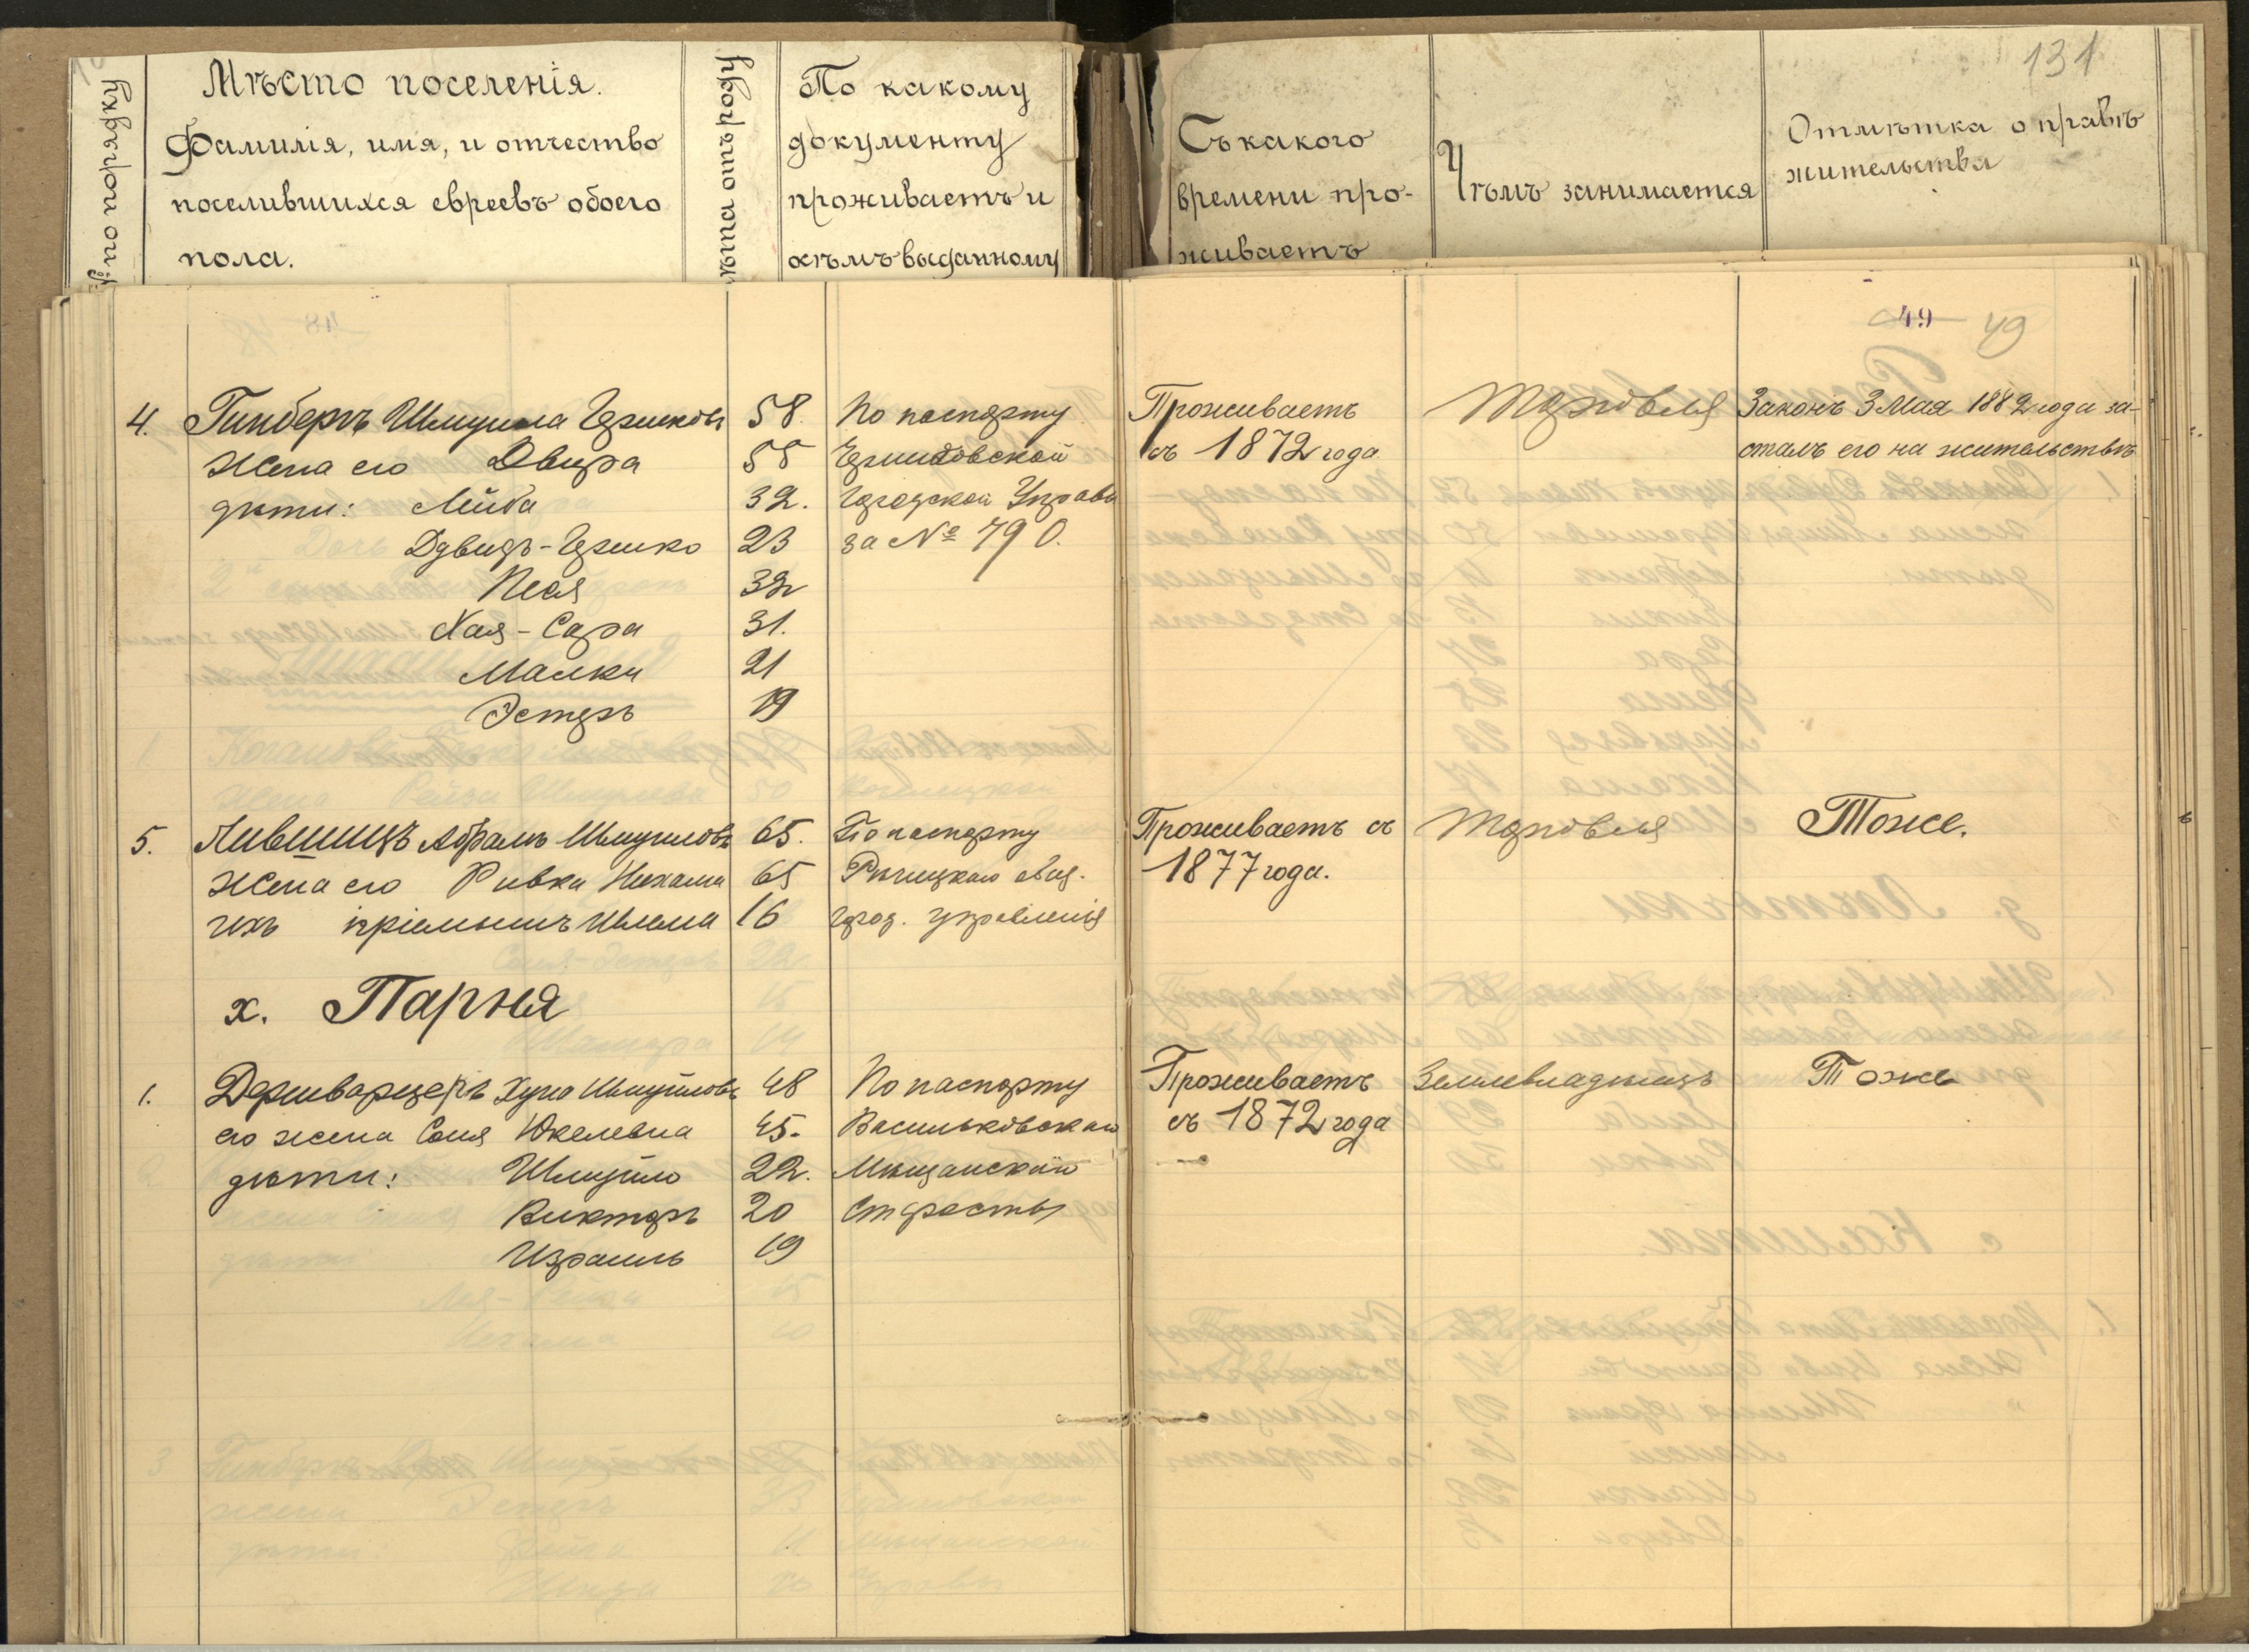 131
№ по порядку
Мѣсто поселенія.
Фамилія, имя, и отчество
поселившихся евреевъ обоего
пола.
лѣта отъ роду
По какому
документу
проживаетъ и
кѣмъ выданному
Съ какого
времени про-
живаетъ
Чѣмъ занимается
Отмѣтка о правѣ
жительства
49 49
4. Гинбергъ Шмуила Гершковъ 58. По паспорту Проживаетъ Торговля Законъ 3 Мая 1882 года за-
жена его Двера 55 Городской Управы съ 1872 года сталъ его на жительствѣ
дѣти: Лейба 32.
Давидъ-Гершко 23 за № 790.
Песя 32
Хая-Сара 31.
Малка 21
Эстеръ 19
5. Лившицъ Абрамъ Шмуиловъ 65. По паспорту Проживаетъ съ Торговля Тоже.
жена его Ривка Нехама 65 Рѣчицкаго 1877 года.
ихъ пріемышъ Шлема 16 город. управленія
х. Парня
1. Держварцеръ Хуна Шмуйловъ 48 По паспорту Проживаетъ Землевладѣлецъ Тоже
его жена Соня Юкелевна 45. Васильковскаго съ 1872 года
дѣти: Шмуйло 22. Мѣщанскаго
Викторъ 20 Старосты
Израиль 19